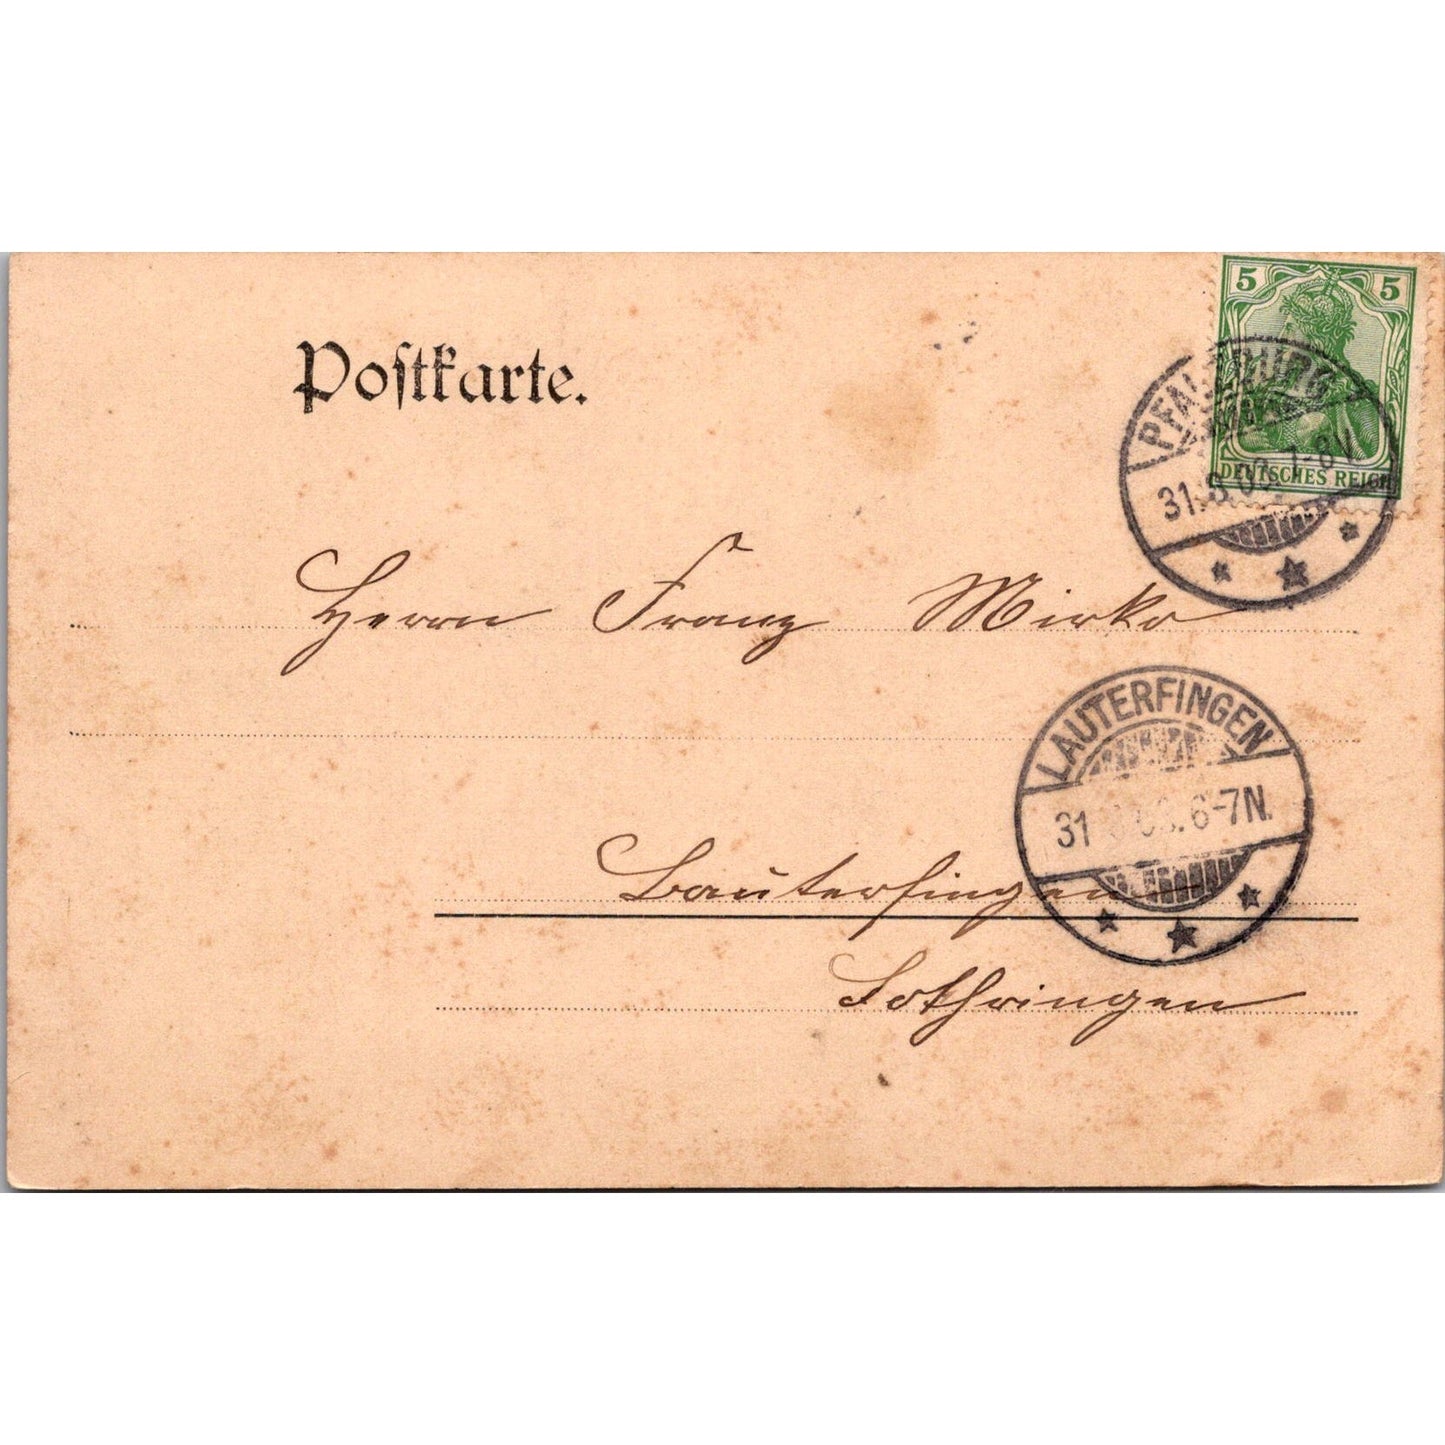 Postkarte.
5 5
DEUTSCHES REICH
PFALZBURG
31.8.03. 7-8V.
Herrn Franz Mirko
LAUTERFINGEN
31 6-7N.
Lauterfingen
Lothringen